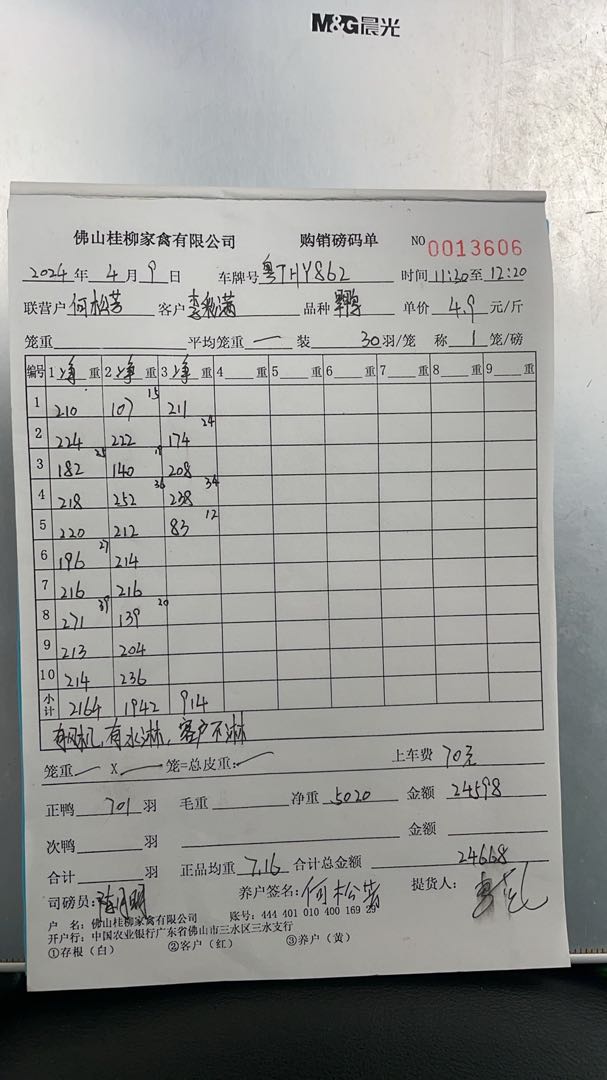 M&G晨光
佛山桂柳家禽有限公司 购销磅码单 NO 0013606
2024年 4月 9日 车牌号 粤THY862 时间 11:30至 12:20
联营户 何松芳 客户 李 满 品种 单价 4.9 元/斤
笼重 平均笼重 一 装 30 羽/笼 称 1 笼/磅
编号 1 净 重 2 净 重 3 净 重 4 重 5 重 6 重 7 重 8 重 9 重
1 210 107 15 211
2 224 222 174 24
3 182 25 140 208
4 218 252 36 238 34
5 220 212 83 12
6 196 27 214
7 216 216
8 271 39 139 20
9 213 204
10 214 236
小计 2164 1942 914
有风机,有水淋,客户不淋
笼重 一 X 一 笼=总皮重: 一 上车费 70元
正鸭 701 羽 毛重 净重 5020 金额 24598
次鸭 羽 金额
合计 羽 正品均重 7.16 合计总金额 24668
司磅员: 明 养户签名: 何松芳 提货人:
户 名: 佛山桂柳家禽有限公司 账号: 444 401 010 400 169 29
开户行: 中国农业银行广东省佛山市三水区三水支行
①存根(白) ②客户(红) ③养户(黄)